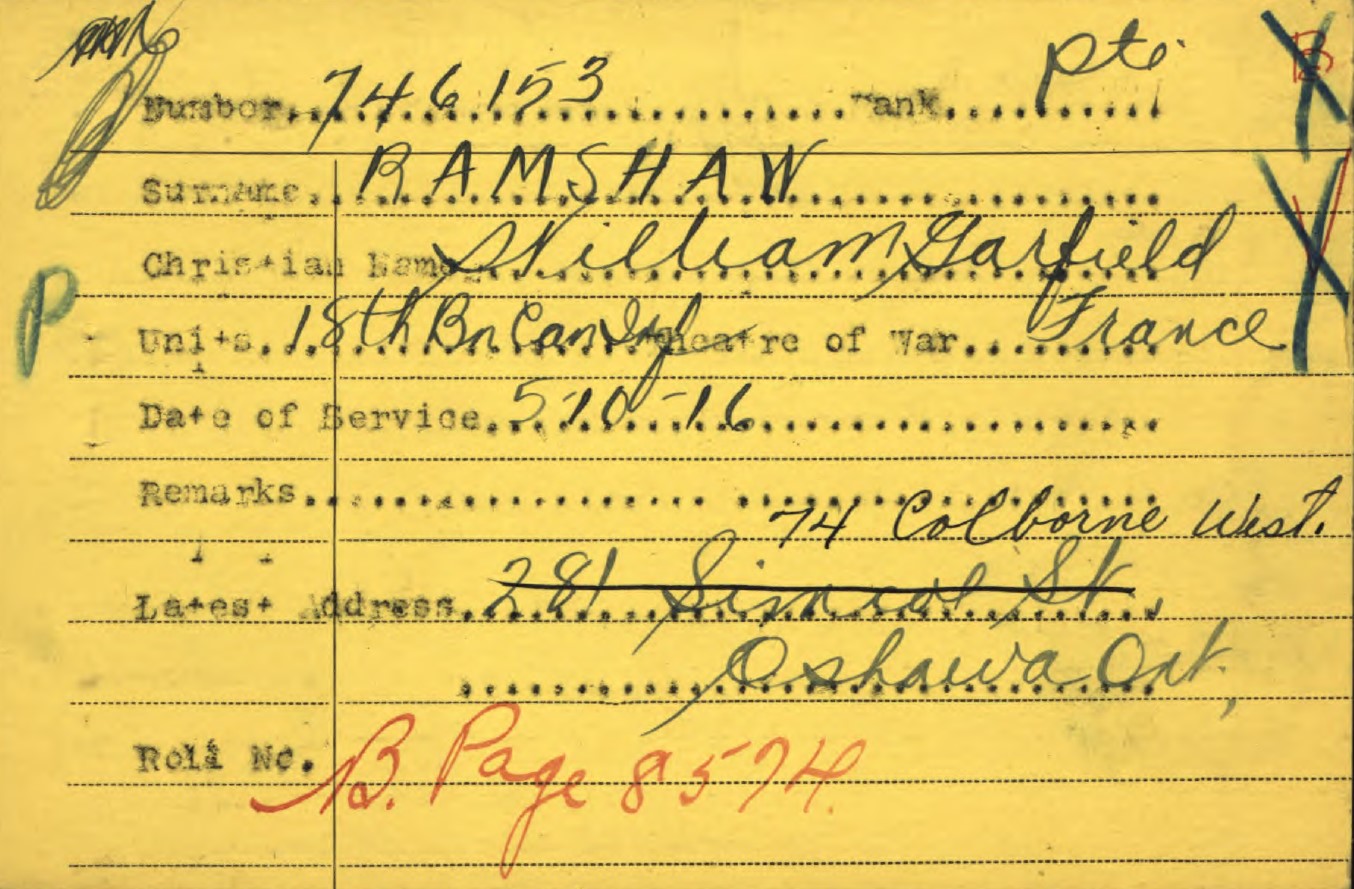 Number. 746153 Rank. Pte. B
Surname. RAMSHAW
Christian Name William Garfield
P
Units. 18th Bn Can Inf Theatre of War. France
Date of Service. 5-10-16
Remarks.
74 Colborne West.
Latest Address. 281 Simcoe St,
Oshawa Ont,
Roll No. B. Page 8574.